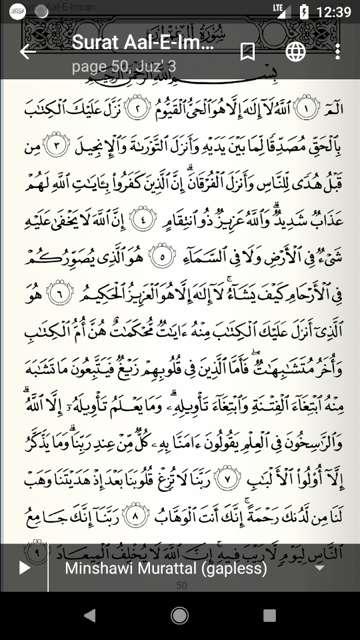 12:39
Surat Aal-E-Im...
page 50, Juz' 3
الٓمٓ ١ ٱللَّهُ لَآ إِلَٰهَ إِلَّا هُوَ ٱلْحَىُّ ٱلْقَيُّومُ ٢ نَزَّلَ عَلَيْكَ ٱلْكِتَٰبَ
بِٱلْحَقِّ مُصَدِّقًا لِّمَا بَيْنَ يَدَيْهِ وَأَنزَلَ ٱلتَّوْرَىٰةَ وَٱلْإِنجِيلَ ٣ مِن
قَبْلُ هُدًى لِّلنَّاسِ وَأَنزَلَ ٱلْفُرْقَانَ ۗ إِنَّ ٱلَّذِينَ كَفَرُوا۟ بِـَٔايَٰتِ ٱللَّهِ لَهُمْ
عَذَابٌ شَدِيدٌ ۗ وَٱللَّهُ عَزِيزٌ ذُو ٱنتِقَامٍ ٤ إِنَّ ٱللَّهَ لَا يَخْفَىٰ عَلَيْهِ
شَىْءٌ فِى ٱلْأَرْضِ وَلَا فِى ٱلسَّمَآءِ ٥ هُوَ ٱلَّذِى يُصَوِّرُكُمْ
فِى ٱلْأَرْحَامِ كَيْفَ يَشَآءُ ۚ لَآ إِلَٰهَ إِلَّا هُوَ ٱلْعَزِيزُ ٱلْحَكِيمُ ٦ هُوَ
ٱلَّذِىٓ أَنزَلَ عَلَيْكَ ٱلْكِتَٰبَ مِنْهُ ءَايَٰتٌ مُّحْكَمَٰتٌ هُنَّ أُمُّ ٱلْكِتَٰبِ
وَأُخَرُ مُتَشَٰبِهَٰتٌ ۖ فَأَمَّا ٱلَّذِينَ فِى قُلُوبِهِمْ زَيْغٌ فَيَتَّبِعُونَ مَا تَشَٰبَهَ
مِنْهُ ٱبْتِغَآءَ ٱلْفِتْنَةِ وَٱبْتِغَآءَ تَأْوِيلِهِۦ ۗ وَمَا يَعْلَمُ تَأْوِيلَهُۥٓ إِلَّا ٱللَّهُ ۗ
وَٱلرَّٰسِخُونَ فِى ٱلْعِلْمِ يَقُولُونَ ءَامَنَّا بِهِۦ كُلٌّ مِّنْ عِندِ رَبِّنَا ۗ وَمَا يَذَّكَّرُ
إِلَّآ أُو۟لُوا۟ ٱلْأَلْبَٰبِ ٧ رَبَّنَا لَا تُزِغْ قُلُوبَنَا بَعْدَ إِذْ هَدَيْتَنَا وَهَبْ
لَنَا مِن لَّدُنكَ رَحْمَةً ۚ إِنَّكَ أَنتَ ٱلْوَهَّابُ ٨ رَبَّنَآ إِنَّكَ جَامِعُ
ٱلنَّاسِ لِيَوْمٍ لَّا رَيْبَ فِيهِ ۚ إِنَّ ٱللَّهَ لَا يُخْلِفُ ٱلْمِيعَادَ ٩
Minshawi Murattal (gapless)
50